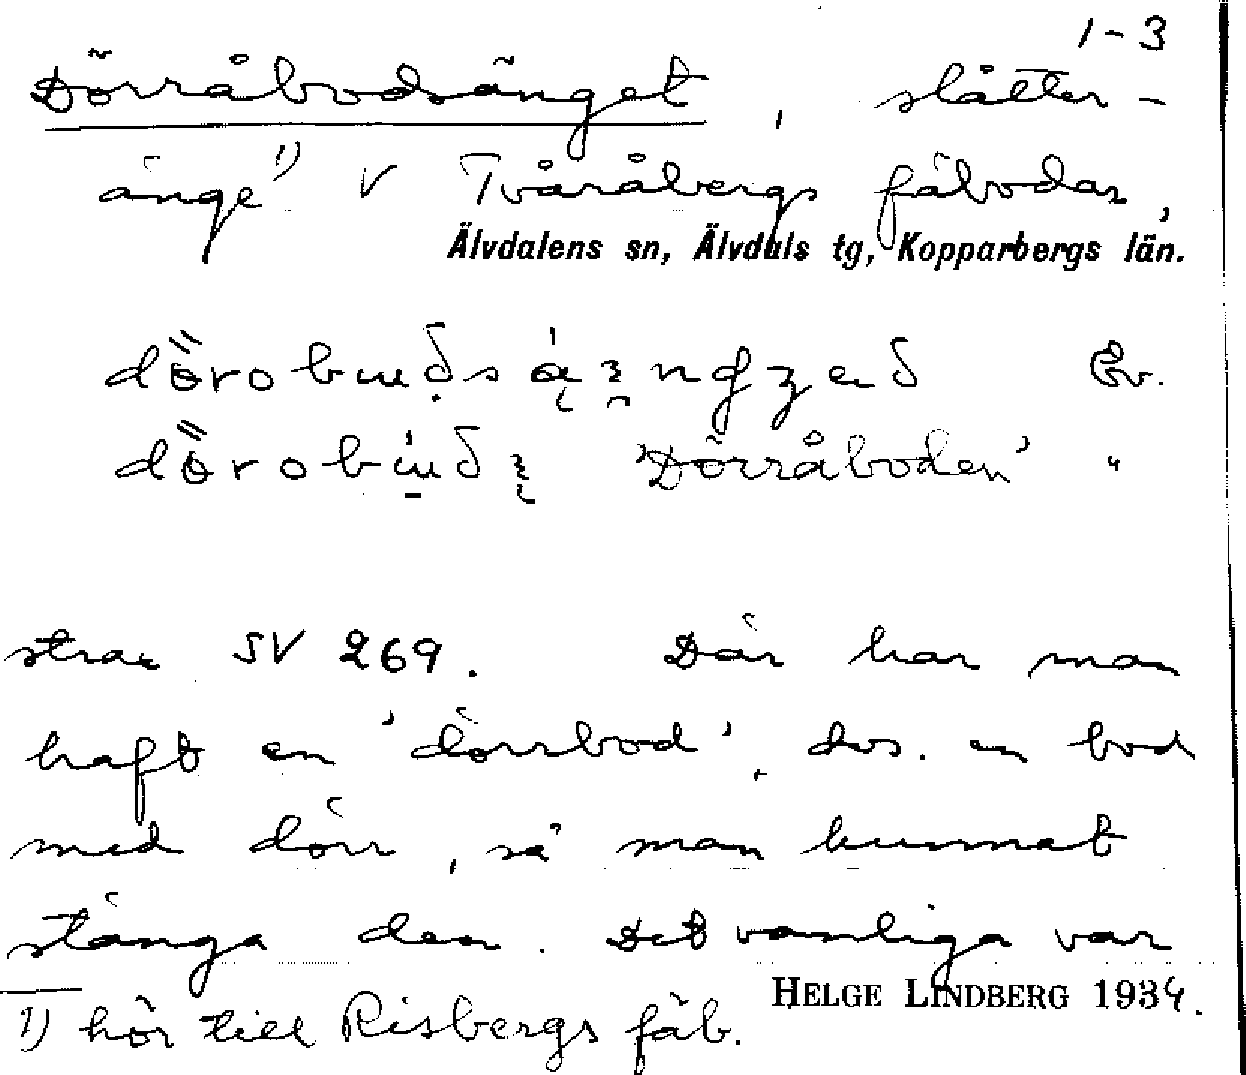 1-3
Dörråbodsänget, slåtter-
änge¹⁾ V Tvåråbergs fäbodar,
Älvdalens sn, Älvdals tg, Kopparbergs län.
Ev.
'Dörråboden' "
strax SV 269. Där har man
haft en 'dörrbod', dvs. en bod
med dörr, så man kunnat
stänga den. Det vanliga var
HELGE LINDBERG 1934.
1) hör till Risbergs fäb.